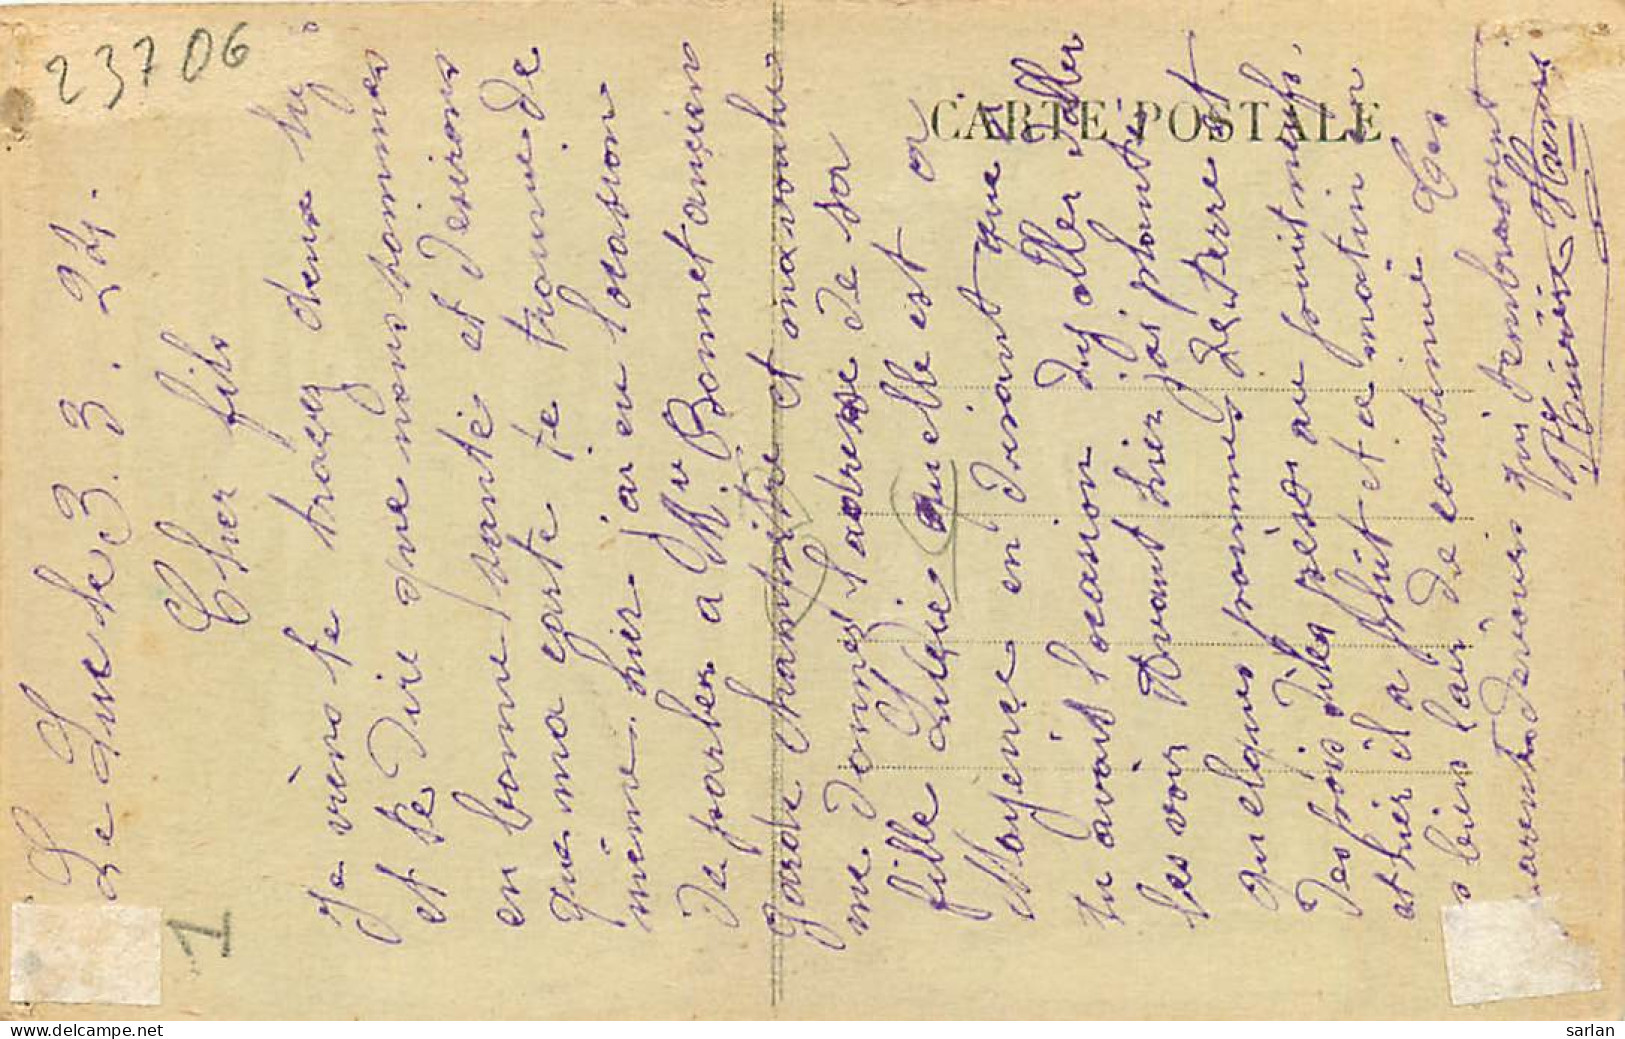 23706
CARTE POSTALE
1
Le Luc le 3.3.24.
Cher fils
Je viens te tracez deux
et te Dire que nous sommes
en bonne santé et Desirons
que ma carte te trouve De
même. hier j'ai eu locasion
De parler a Mr Bonnet ançiens
garde champêtre et
me Donnés l'adresse De sa
fille Lucie quelle est a
Mayençe en Disant que si
tu avais l'ocasion Dy aller Daller
les voir Avant hier j'ai plantes
quelques pommes De terre et
Des pois
et hier il a pluit et ce matin on
a bien l'air De continué Tes
parents Devoués qui t'embrassent
www.delcampe.net
sarlan